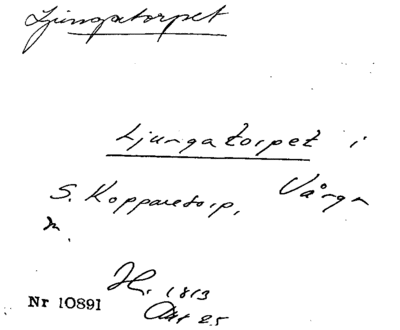 Ljungatorpet
Ljungatorpet i
S. Kopparetorp, Vårgn
Hr. 1813
Akt 25
Nr 10891